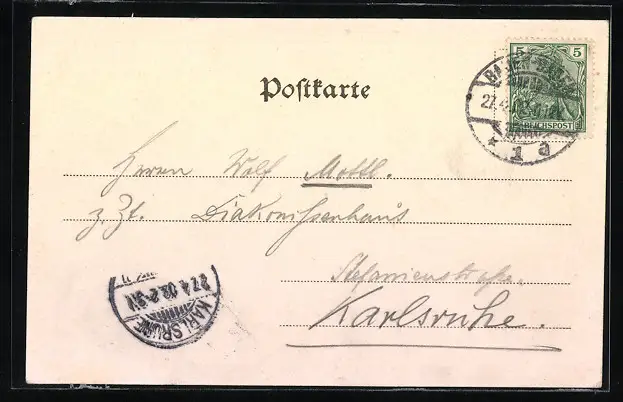 Postkarte
5 5
BADEN-BADEN
27.4.
REICHSPOST
* 1 a
Herrn Wolf Mottl.
z. Zt. Diakonissenhaus
Stefanienstraße.
Karlsruhe.
KARLSRUHE
27.4.00.2-3N